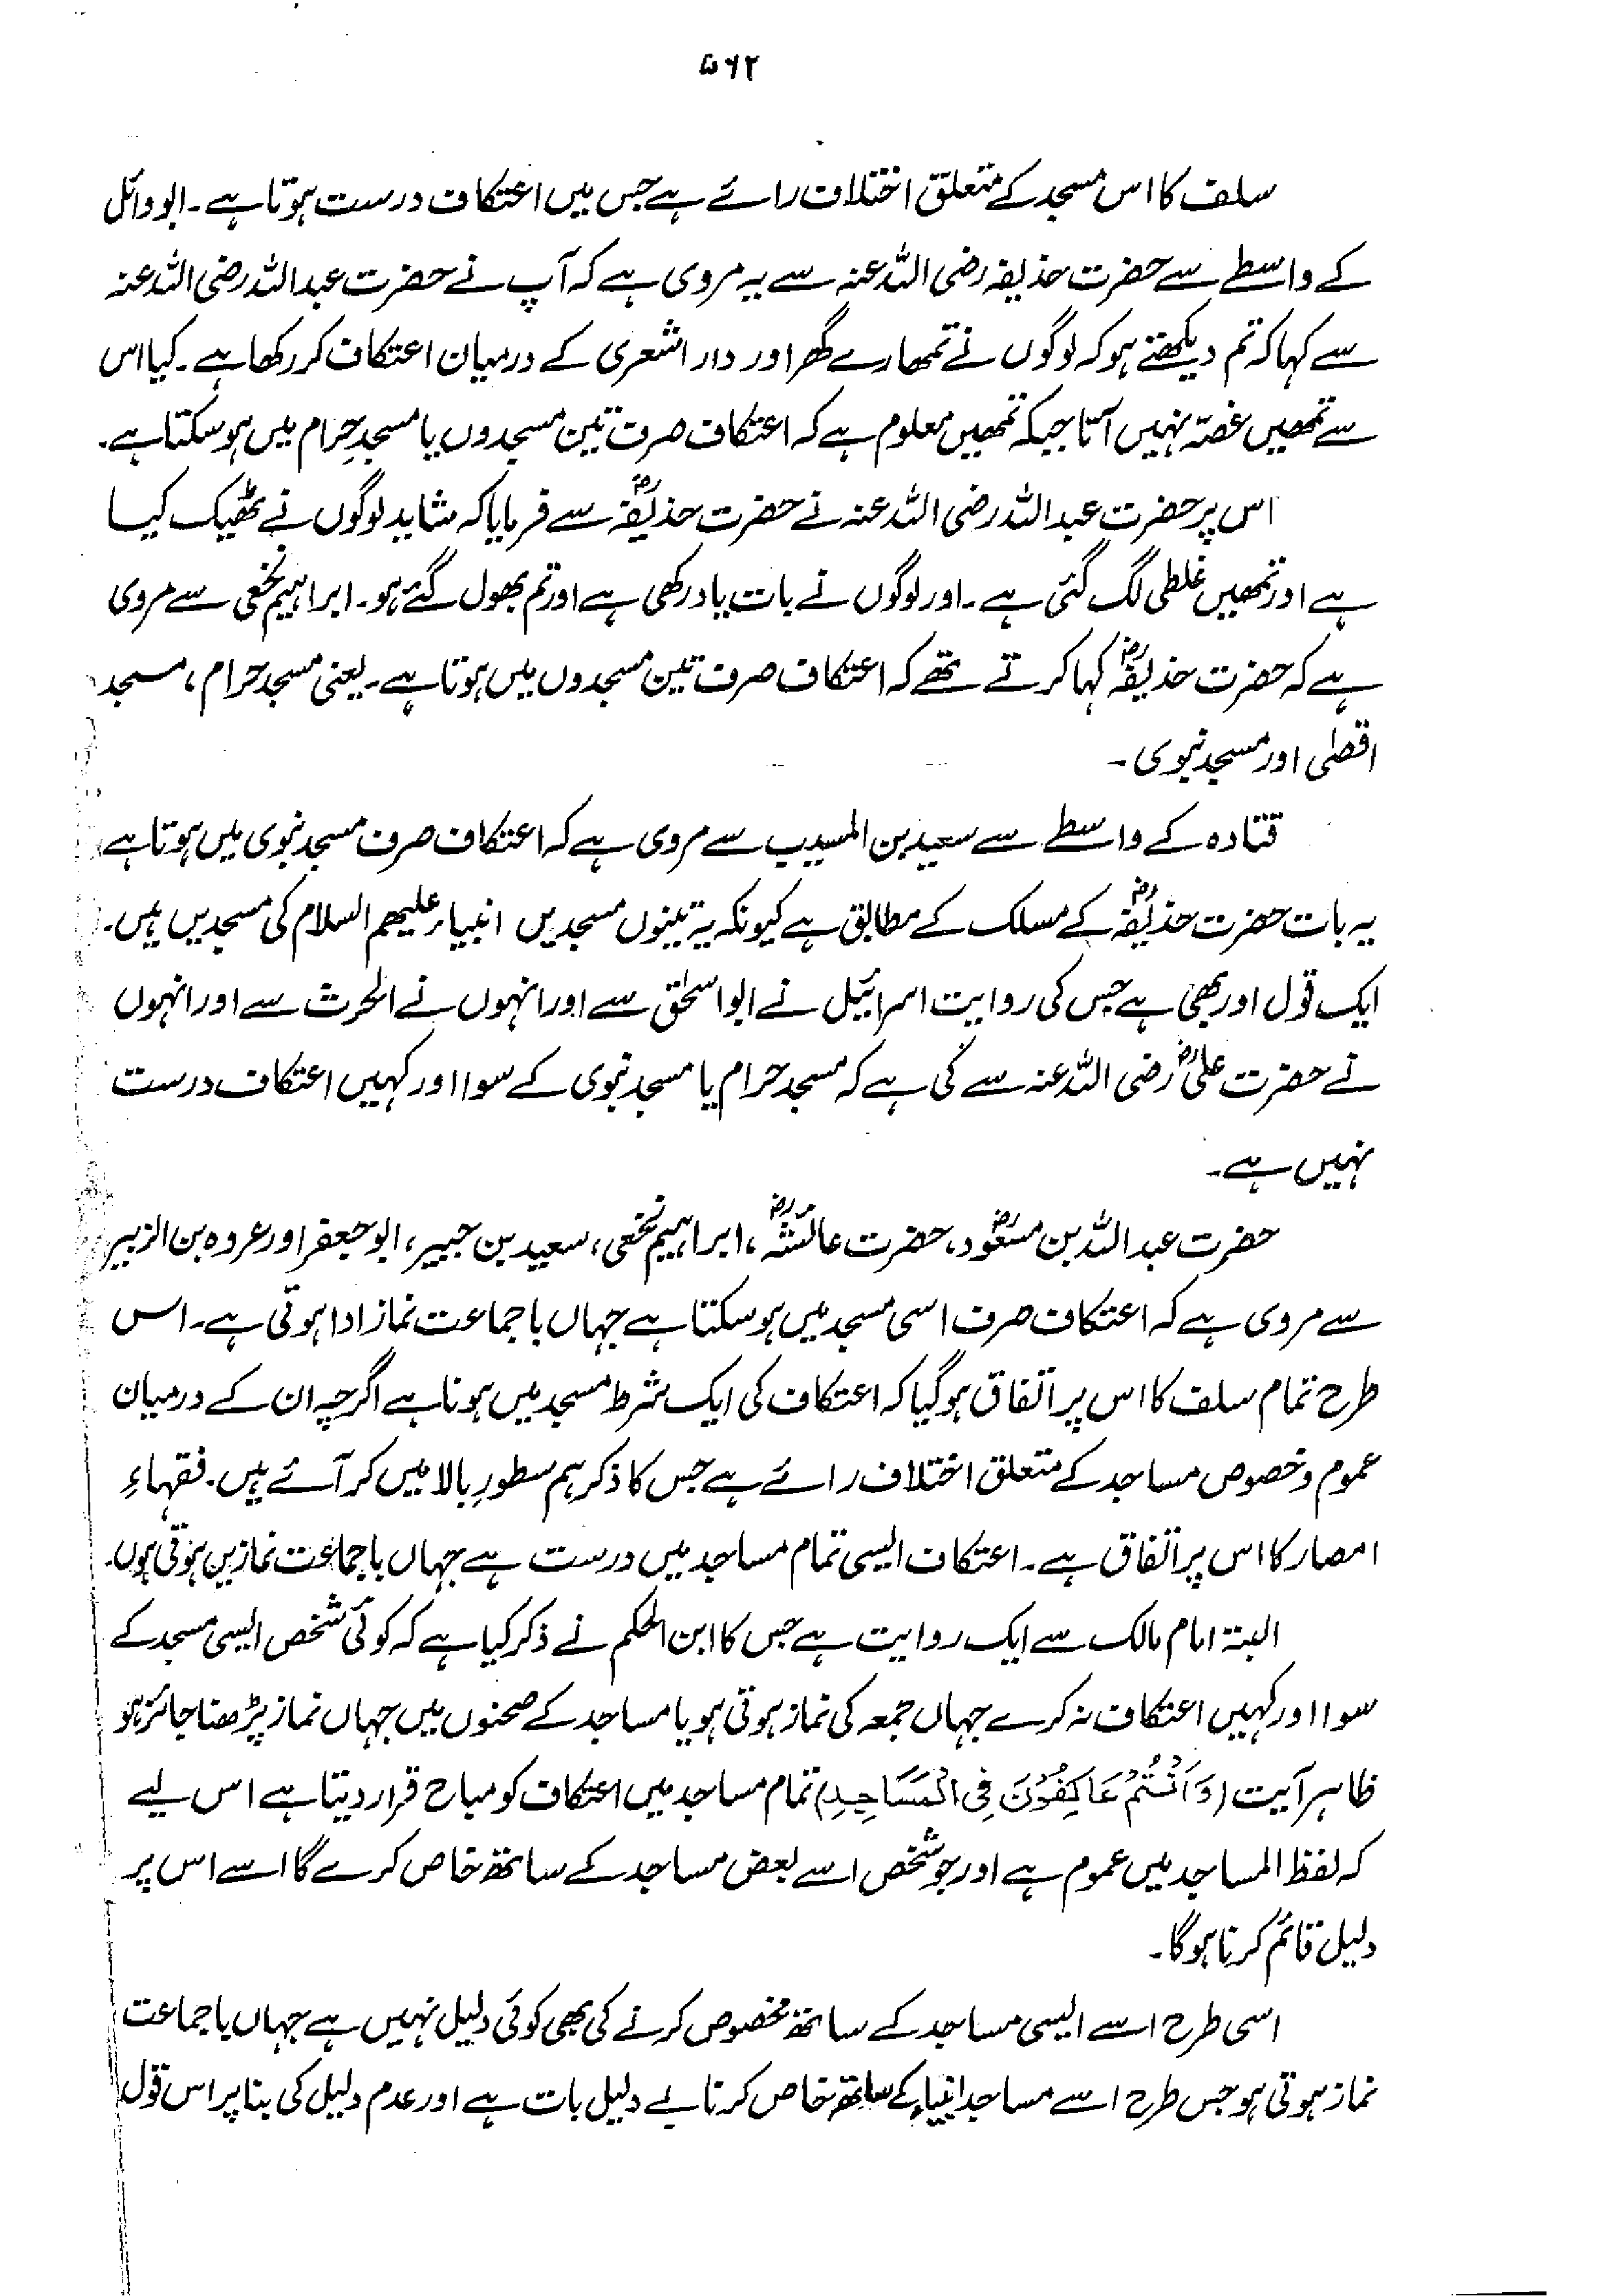 ۵۶۲
سلف کا اس مسجد کے متعلق اختلاف رائے ہے جس میں اعتکاف درست ہوتا ہے۔ ابو وائل
کے واسطے سے حضرت حذیفہ رضی اللہ عنہ سے یہ مروی ہے کہ آپ نے حضرت عبداللہ رضی اللہ عنہ
سے کہا کہ تم دیکھتے ہو کہ لوگوں نے تمھارے گھر اور دار اشعری کے درمیان اعتکاف کر رکھا ہے۔ کیا اس
سے تمھیں غصّہ نہیں آتا جبکہ تمھیں معلوم ہے کہ اعتکاف صرف تین مسجدوں یا مسجدِ حرام میں ہو سکتا ہے۔
اس پر حضرت عبداللہ رضی اللہ عنہ نے حضرت حذیفہؓ سے فرمایا کہ شاید لوگوں نے ٹھیک کیا
ہے اور تمھیں غلطی لگ گئی ہے۔ اور لوگوں نے بات یاد رکھی ہے اور تم بھول گئے ہو۔ ابراہیم نخعی سے مروی
ہے کہ حضرت حذیفہؓ کہا کرتے تھے کہ اعتکاف صرف تین مسجدوں میں ہوتا ہے۔ یعنی مسجد حرام، مسجد
اقصٰی اور مسجد نبوی۔
قتادہ کے واسطے سے سعید بن المسیب سے مروی ہے کہ اعتکاف صرف مسجد نبوی میں ہوتا ہے
یہ بات حضرت حذیفہؓ کے مسلک کے مطابق ہے کیونکہ یہ تینوں مسجدیں انبیاء علیھم السلام کی مسجدیں ہیں۔
ایک قول اور بھی ہے جس کی روایت اسرائیل نے ابو اسحٰق سے اور انہوں نے الحرث سے اور انہوں
نے حضرت علیؓ رضی اللہ عنہ سے کی ہے کہ مسجد حرام یا مسجد نبوی کے سوا اور کہیں اعتکاف درست
نہیں ہے۔
حضرت عبداللہ بن مسعودؓ، حضرت عائشہؓ، ابراہیم نخعی، سعید بن جبیر، ابو جعفر اور عروہ بن الزبیر
سے مروی ہے کہ اعتکاف صرف اسی مسجد میں ہو سکتا ہے جہاں باجماعت نماز ادا ہوتی ہے۔ اس
طرح تمام سلف کا اس پر اتفاق ہو گیا کہ اعتکاف کی ایک شرط مسجد میں ہونا ہے اگرچہ ان کے درمیان
عموم و خصوص مساجد کے متعلق اختلاف رائے ہے جس کا ذکر ہم سطورِ بالا میں کر آئے ہیں۔ فقہاءِ
امصار کا اس پر اتفاق ہے۔ اعتکاف ایسی تمام مساجد میں درست ہے جہاں باجماعت نمازیں ہوتی ہوں۔
البتہ امام مالک سے ایک روایت ہے جس کا ابن الحکم نے ذکر کیا ہے کہ کوئی شخص ایسی مسجد کے
سوا اور کہیں اعتکاف نہ کرے جہاں جمعہ کی نماز ہوتی ہو یا مساجد کے صحنوں میں جہاں نماز پڑھنا جائز ہو
ظاہر آیت (وَاَنْتُمْ عَاكِفُوْنَ فِی الْمَسَاجِدِ) تمام مساجد میں اعتکاف کو مباح قرار دیتا ہے اس لیے
کہ لفظ المساجد میں عموم ہے اور جو شخص اسے بعض مساجد کے ساتھ خاص کرے گا اسے اس پر
دلیل قائم کرنا ہوگا۔
اسی طرح اسے ایسی مساجد کے ساتھ مخصوص کرنے کی بھی کوئی دلیل نہیں ہے جہاں باجماعت
نماز ہوتی ہو جس طرح اسے مساجد انبیاء کے ساتھ خاص کرنا بے دلیل بات ہے اور عدم دلیل کی بنا پر اس قول